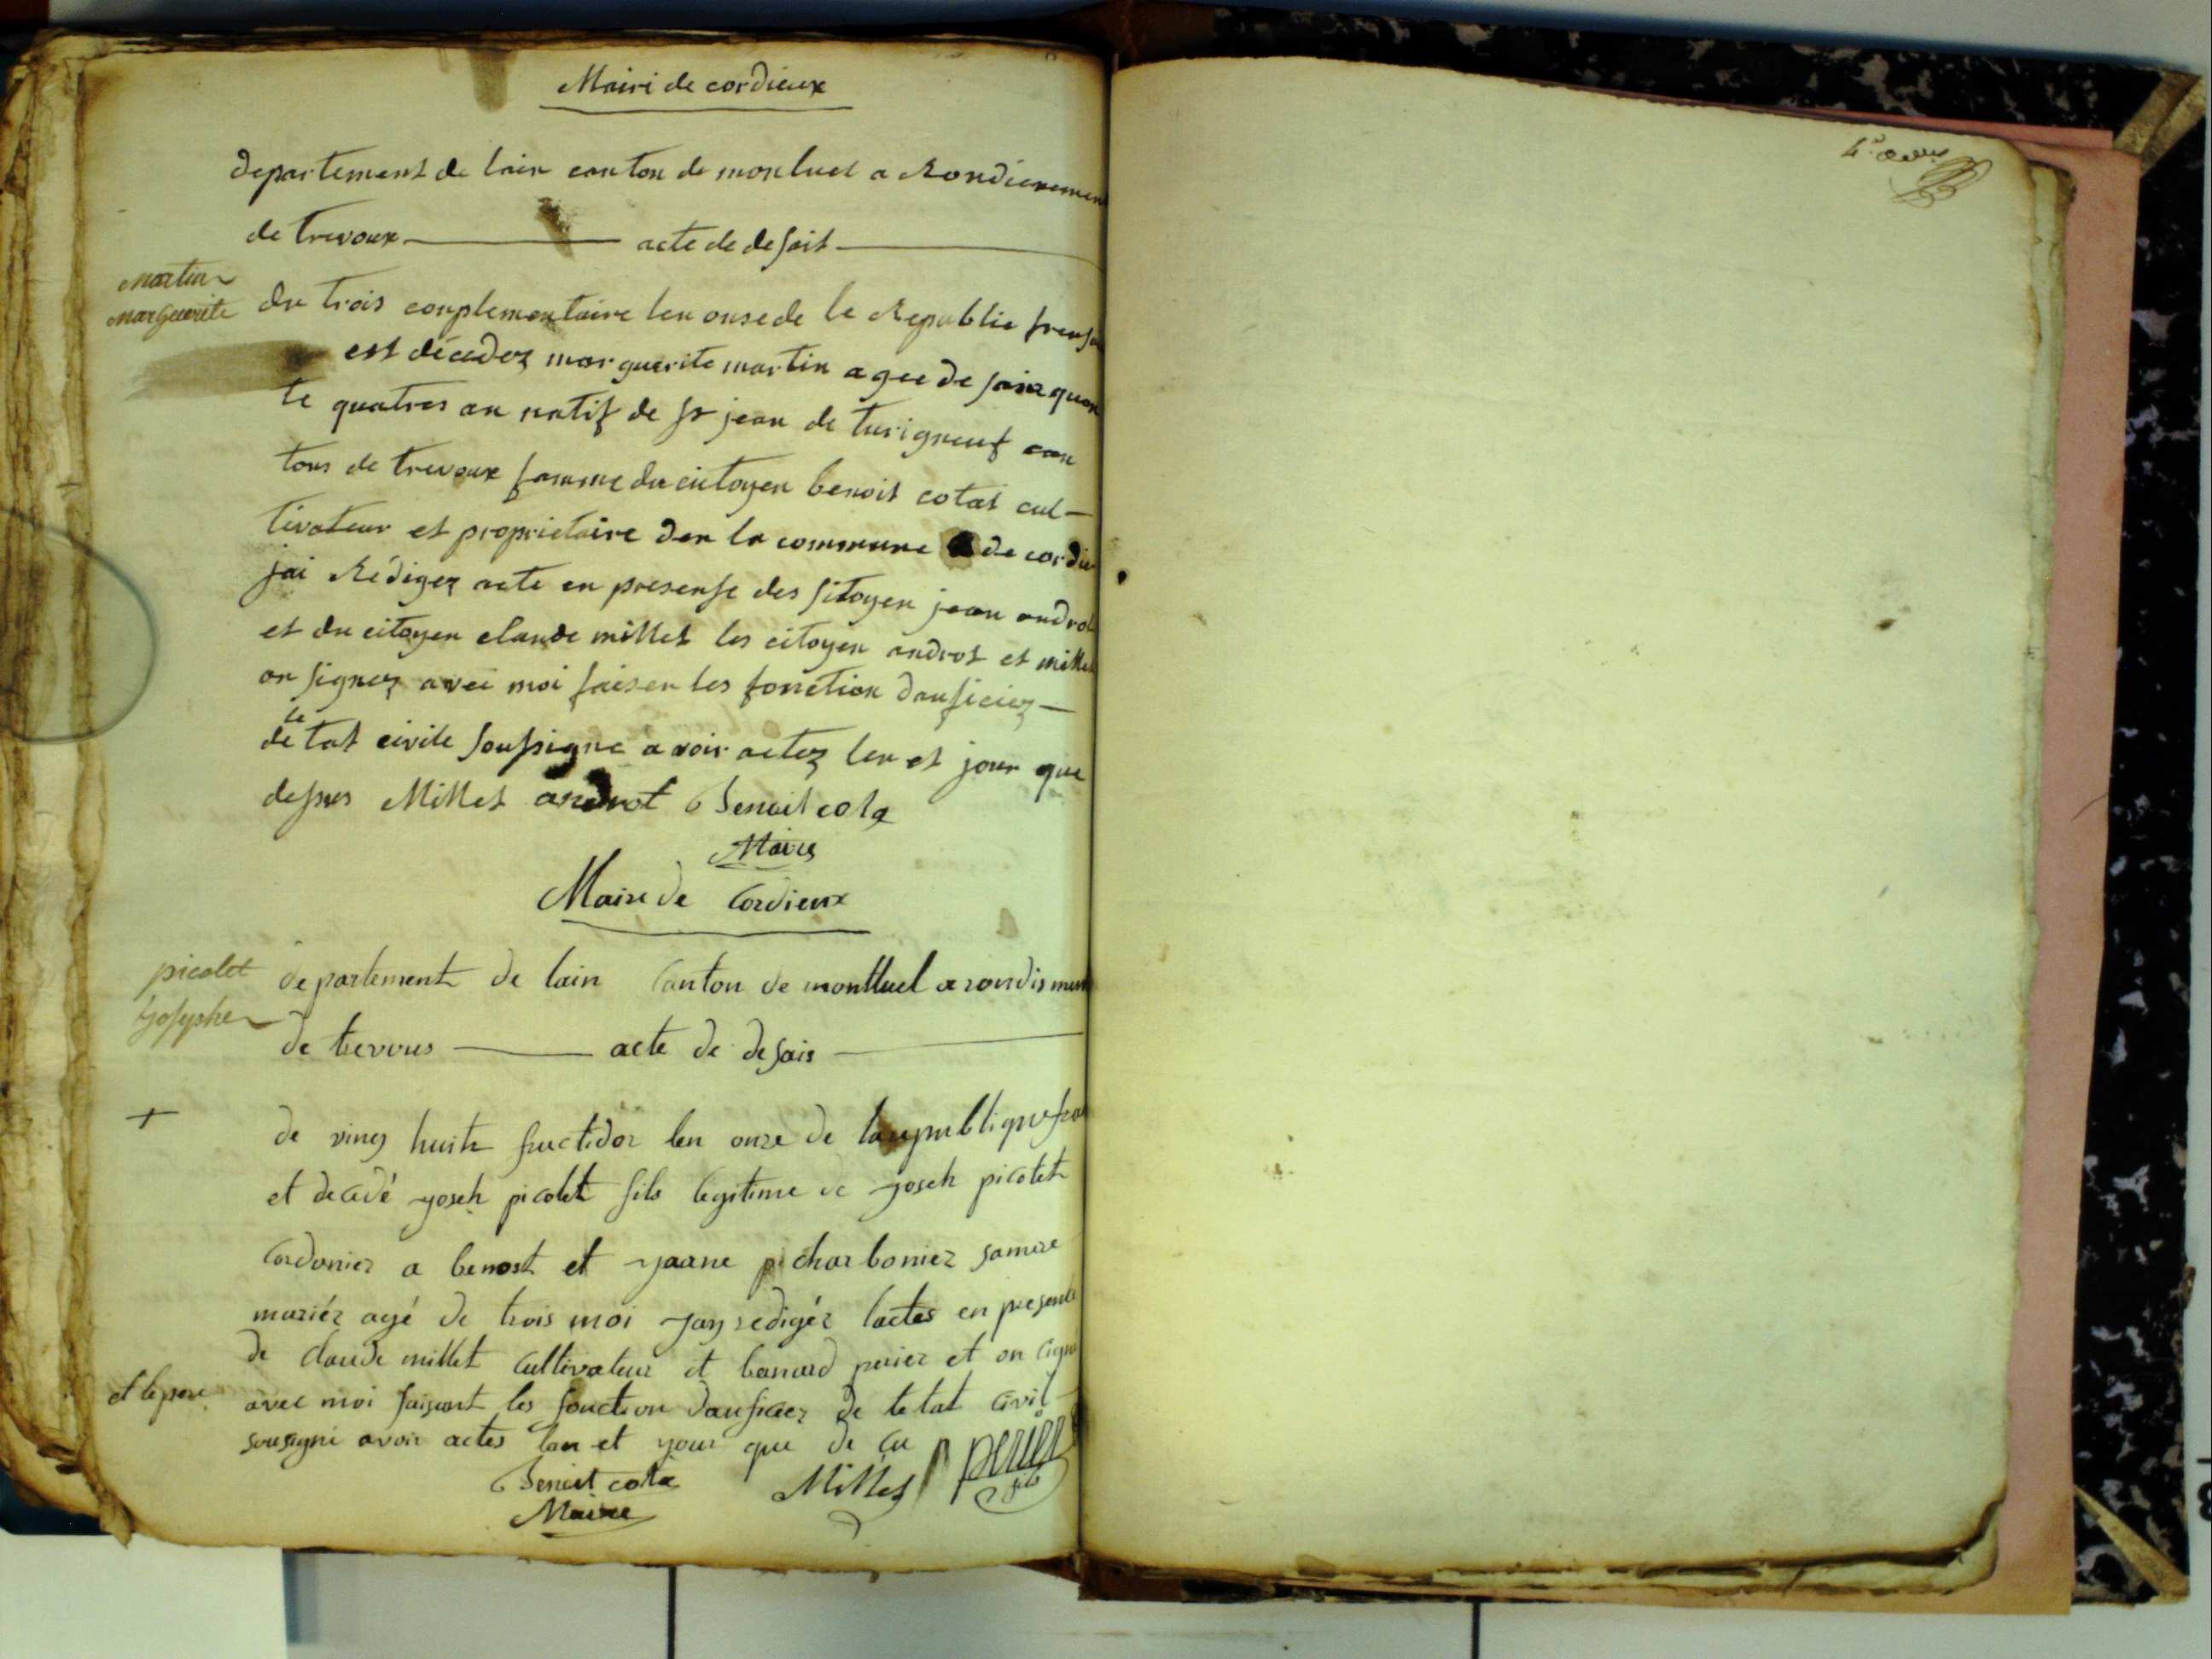 Mairi de cordieux
departement de lain canton de monluel a Rondicement
de trevoux acte de desait
Martin
Marguerite
du trois conplementaire len onse de le Republic fransa
est décédez marguerite martin agee de sincquan
te quatres an natif de st jean de turigneuf can
tons de trevoux famme du citoyen benoit cotat cul-
tivateur et proprietaire den la commune de cordie
jai Rédigez acte en presense des sitoyen jean androt
et du citoyen claude millet les citoyen androt et millet
on signez avec moi faisen les fonction dauficiez
de le tat civile soussigne avoir actez len et jour que
desus Millet androt Benoit cota
Maire
Maire de Cordieux
picolet
Josephe
departement de lain Canton de montluel arondisment
de trevous acte de desais
+
de vingt huite fructidor len onze de la republique fran
et decedé yoseh picolet fils legitime de yoseh picotet
Cordonier a benost et yaane charboniez
mariéz agé de trois moi jay redigéz lactes en presence
de claude millet Cultivateur et banard periez et on cigne
et le pere
avec moi faisant les fonction dauficiez de le tat civil
sousigné avoir actes lan et your que de cu
Benoit cota Millet perier fils
Maire